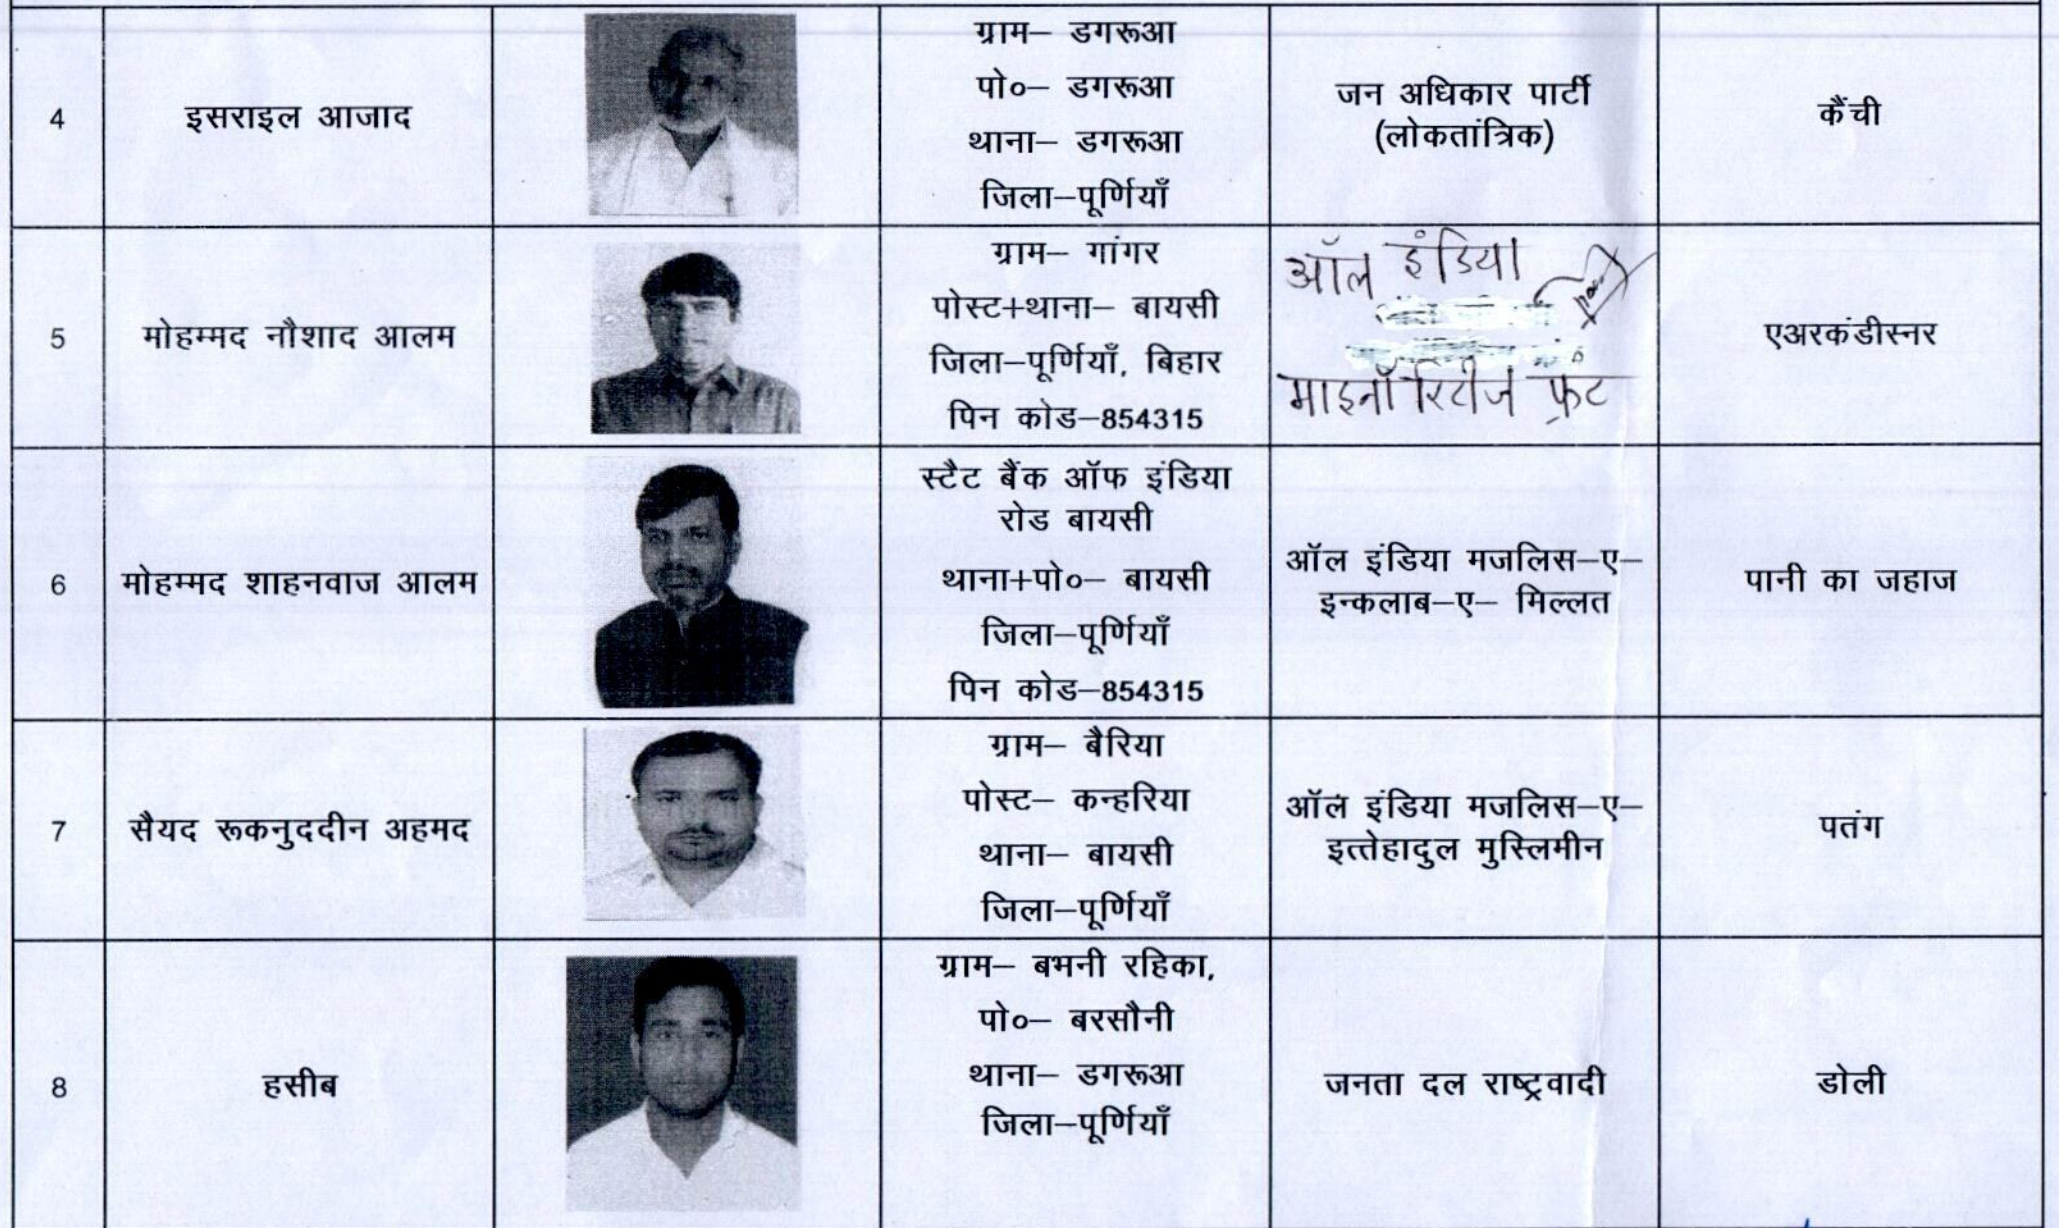 4
इसराइल आजाद
ग्राम– डगरूआ
पो०– डगरूआ
थाना– डगरूआ
जिला–पूर्णियाँ
जन अधिकार पार्टी
(लोकतांत्रिक)
कैंची
5
मोहम्मद नौशाद आलम
ग्राम– गांगर
पोस्ट+थाना– बायसी
जिला–पूर्णियाँ, बिहार
पिन कोड–854315
ऑल इंडिया
माइनॉरिटीज फ्रंट
एअरकंडीस्नर
6
मोहम्मद शाहनवाज आलम
स्टैट बैंक ऑफ इंडिया
रोड बायसी
थाना+पो०– बायसी
जिला–पूर्णियाँ
पिन कोड–854315
ऑल इंडिया मजलिस–ए–
इन्कलाब–ए– मिल्लत
पानी का जहाज
7
सैयद रूकनुददीन अहमद
ग्राम– बैरिया
पोस्ट– कन्हरिया
थाना– बायसी
जिला–पूर्णियाँ
ऑल इंडिया मजलिस–ए–
इत्तेहादुल मुस्लिमीन
पतंग
8
हसीब
ग्राम– बभनी रहिका,
पो०– बरसौनी
थाना– डगरूआ
जिला–पूर्णियाँ
जनता दल राष्ट्रवादी
डोली